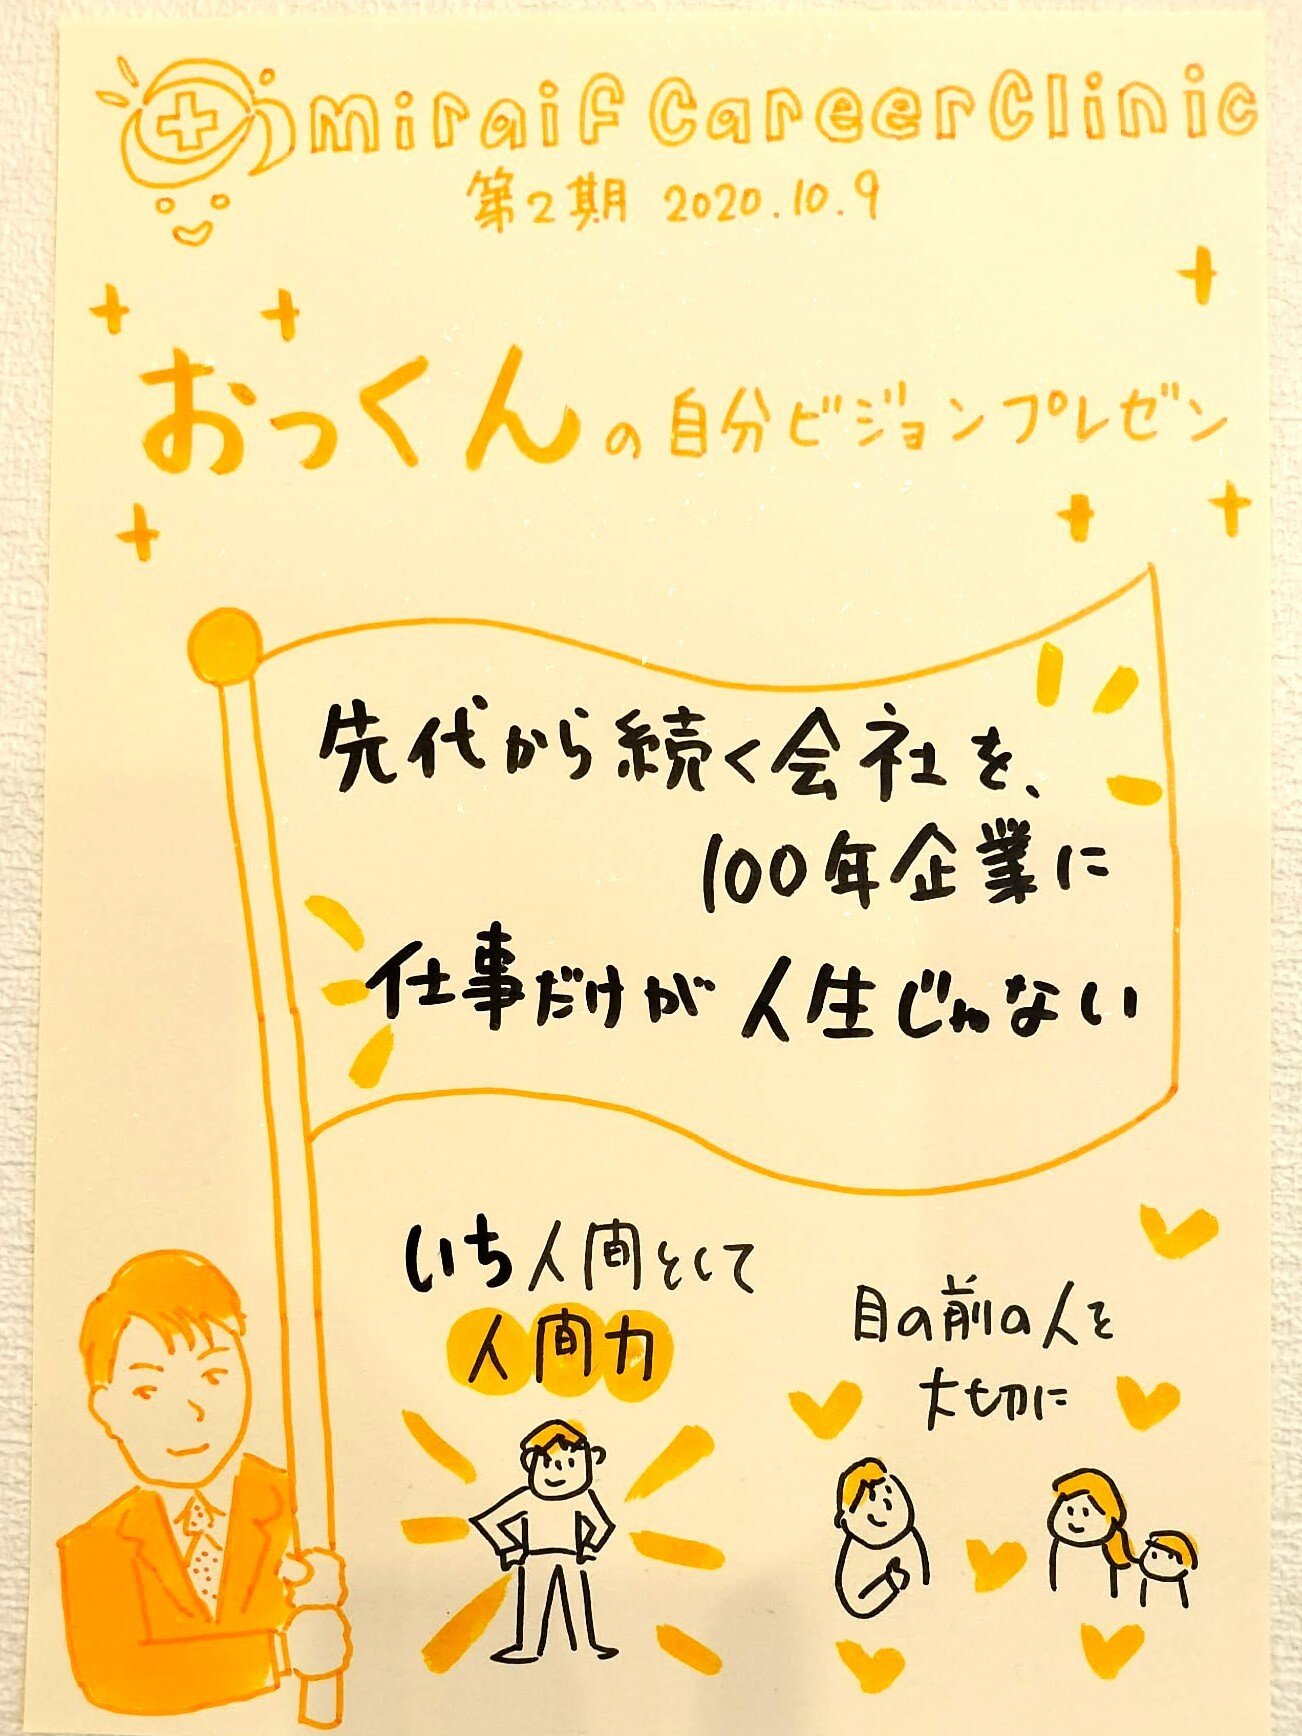 miraif CareerClinic
第2期 2020.10.9
おっくんの自分ビジョンプレゼン
先代から続く会社を、
100年企業に
仕事だけが人生じゃない
いち人間として
人間力
目の前の人を
大切に